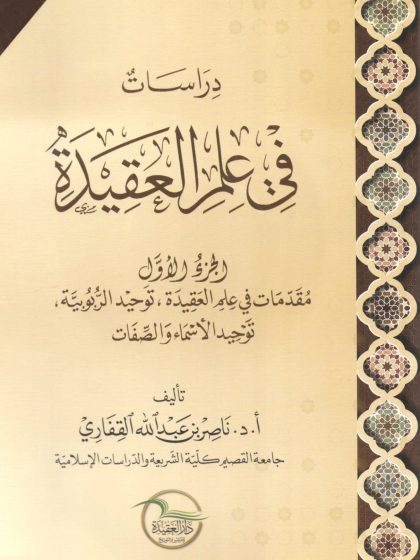 دِرَاسَاتٌ
فِي عِلْمِ العَقِيدَةِ
الجزءُ الأوّل
مُقَدِّمَات فِي عِلمِ العَقِيدَة، تَوحِيد الرُّبُوبِيَّة،
تَوحِيد الأسْمَاءِ وَالصِّفَات
تأليف
أ.د. نَاصِر بن عَبدِ اللهِ القِفَارِي
جامعة القصيم كلية الشريعة والدراسات الإسلامية
دار العقيدة
للنشر والتوزيع